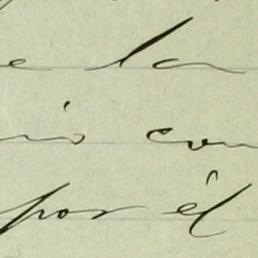 e la
io con
por él